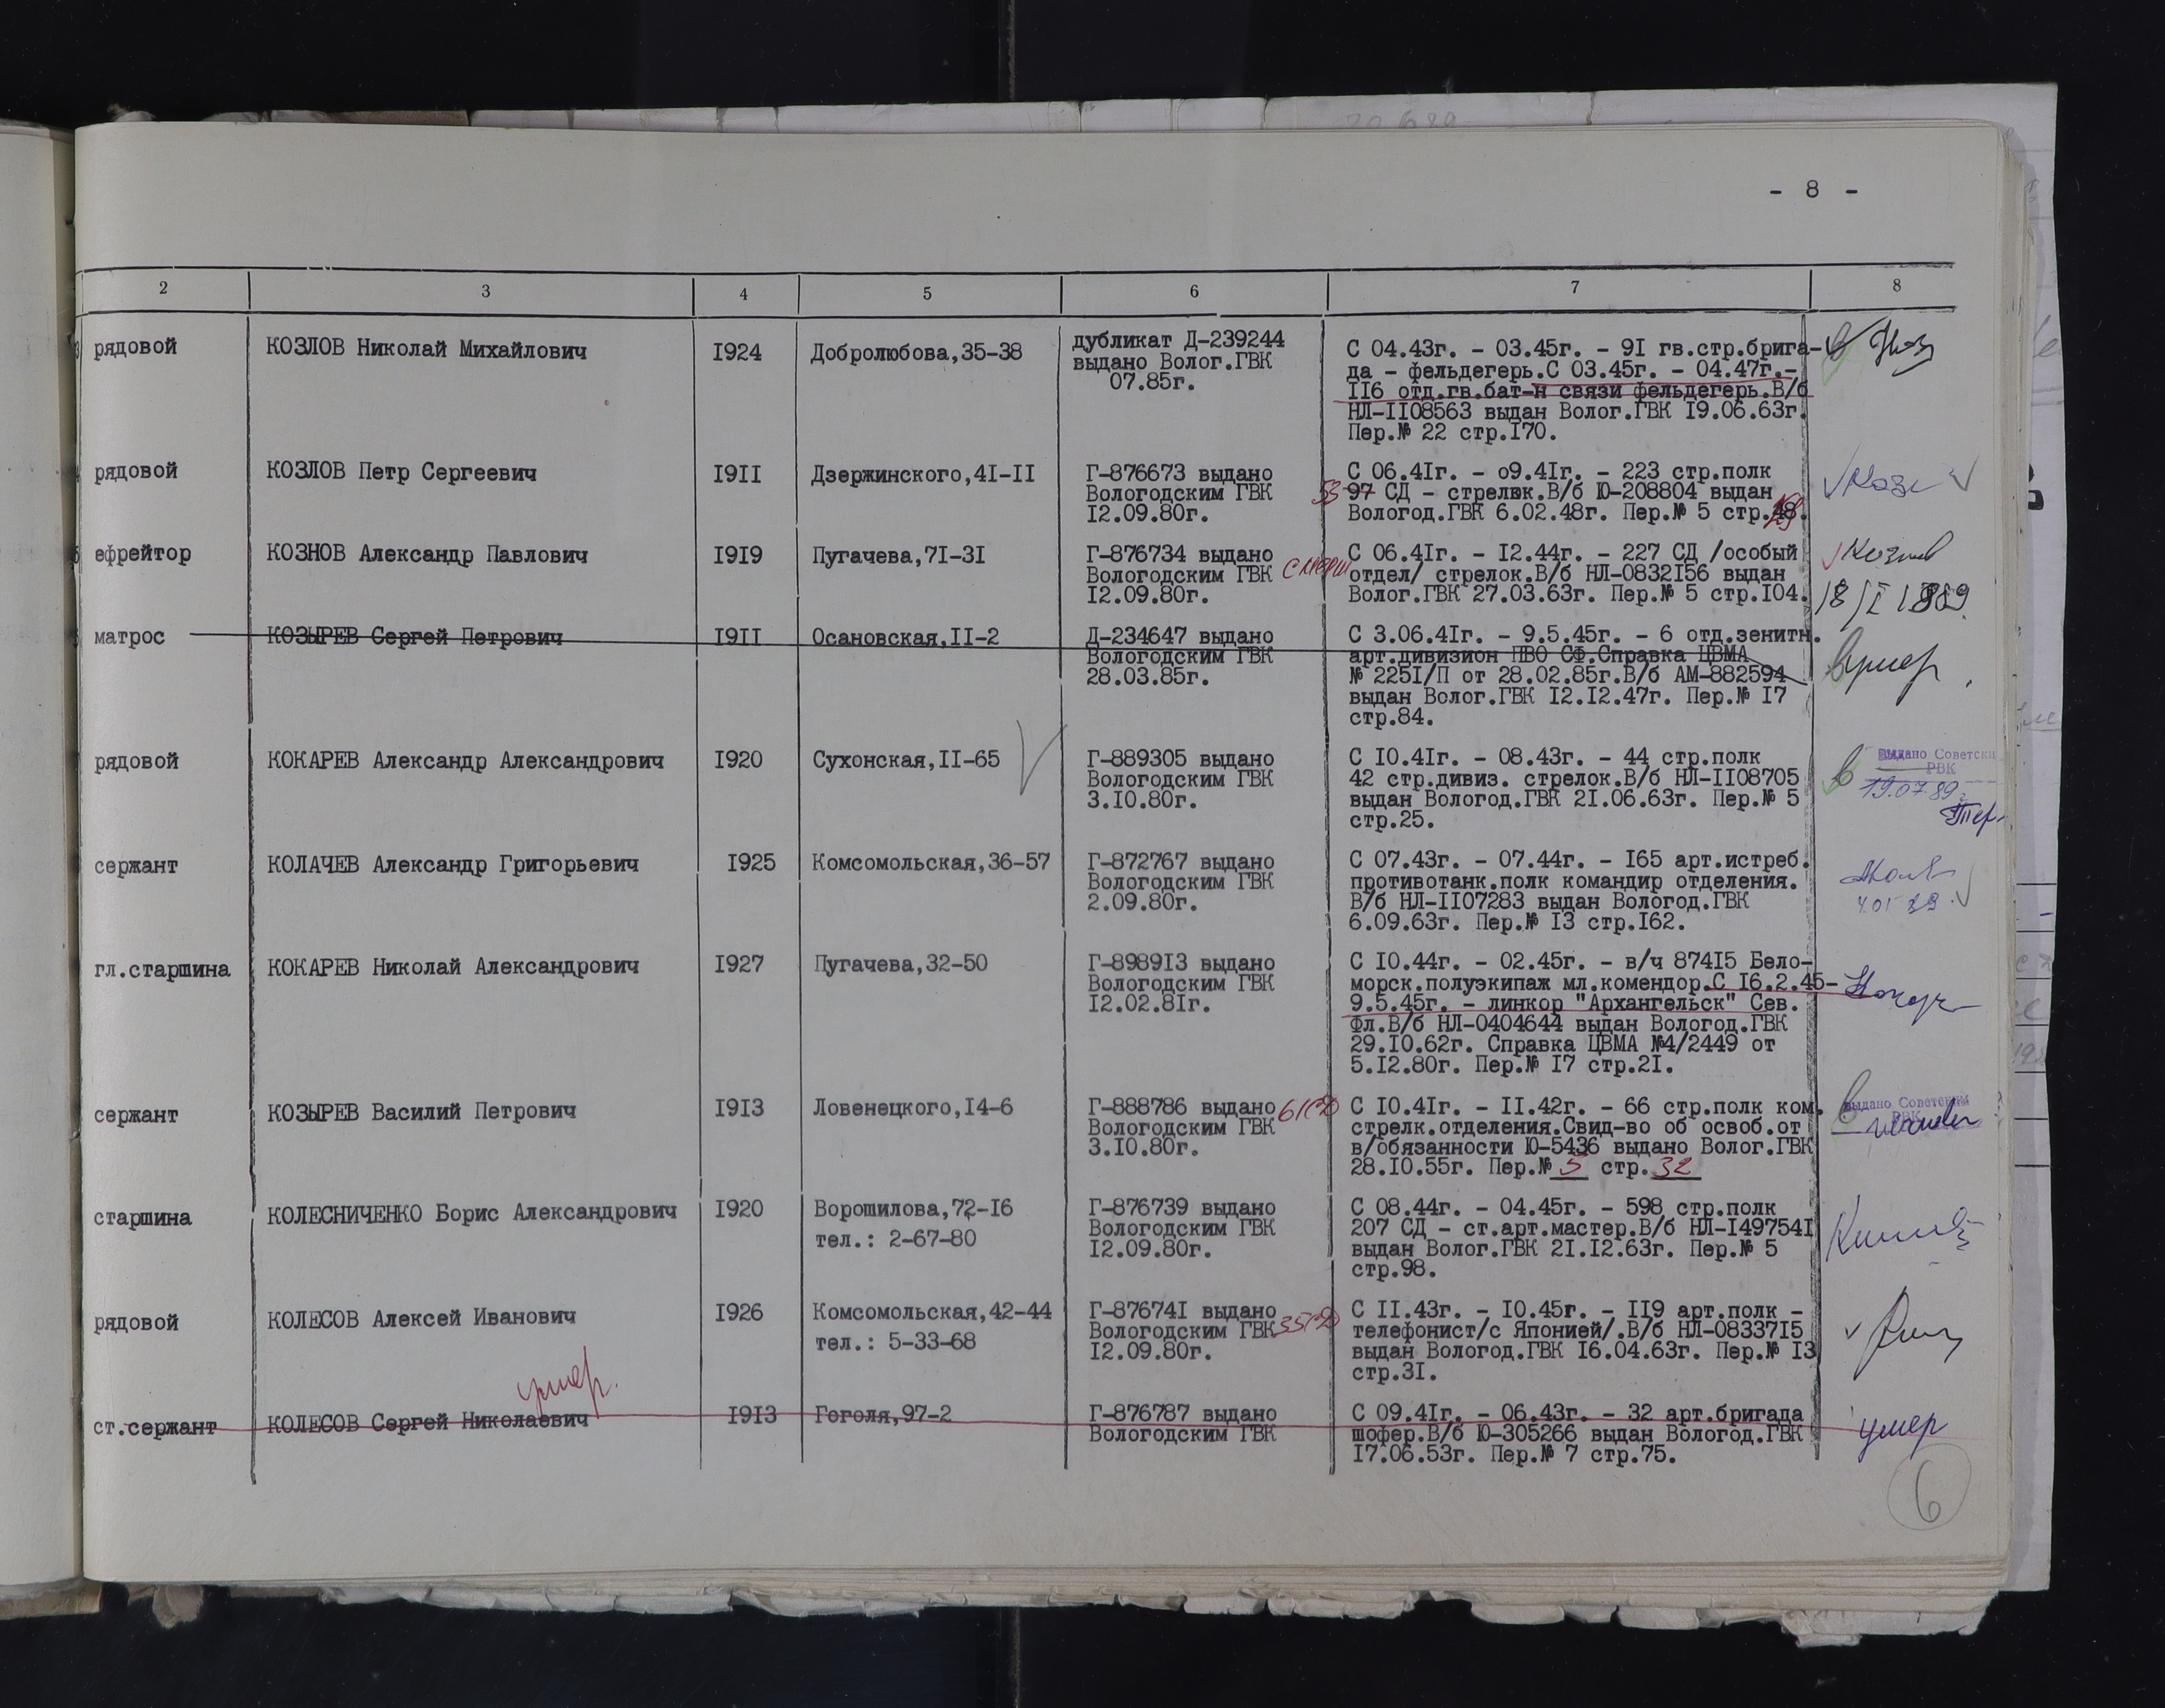 - 8 -
2 3 4 5 6 7 8
рядовой КОЗЛОВ Николай Михайлович 1924 Добролюбова,35-38 дубликат Д-239244 С 04.43г. - 03.45г. - 91 гв.стр.брига-
выдано Волог.ГВК да - фельдегерь.С 03.45г. - 04.47г.-
07.85г. 116 отд.гв.бат-н связи фельдегерь.В/б
НЛ-1108563 выдан Волог.ГВК 19.06.63г.
Пер.№ 22 стр.170.
рядовой КОЗЛОВ Петр Сергеевич 1911 Дзержинского,41-11 Г-876673 выдано С 06.41г. - 09.41г. - 223 стр.полк
Вологодским ГВК 53 97 СД - стрелюк.В/б Ю-208804 выдан
12.09.80г. Вологод.ГВК 6.02.48г. Пер.№ 5 стр.
ефрейтор КОЗНОВ Александр Павлович 1919 Пугачева,71-31 Г-876734 выдано С 06.41г. - 12.44г. - 227 СД /особый
Вологодским ГВК смерш отдел/ стрелок.В/б НЛ-0832156 выдан
12.09.80г. Волог.ГВК 27.03.63г. Пер.№ 5 стр.104. 18/I 1989
матрос КОЗЫРЕВ Сергей Петрович 1911 Осановская,11-2 Д-234647 выдано С 3.06.41г. - 9.5.45г. - 6 отд.зенитн.
Вологодским ГВК арт.дивизион ПВО СФ.Справка ЦВМА умер
28.03.85г. № 2251/П от 28.02.85г.В/б АМ-882594
выдан Волог.ГВК 12.12.47г. Пер.№ 17
стр.84.
рядовой КОКАРЕВ Александр Александрович 1920 Сухонская,11-65 Г-889305 выдано С 10.41г. - 08.43г. - 44 стр.полк выдано Советски
Вологодским ГВК 42 стр.дивиз. стрелок.В/б НЛ-1108705 РВК
3.10.80г. выдан Вологод.ГВК 21.06.63г. Пер.№ 5 19.07.89г
стр.25.
сержант КОЛАЧЕВ Александр Григорьевич 1925 Комсомольская,36-57 Г-872767 выдано С 07.43г. - 07.44г. - 165 арт.истреб.
Вологодским ГВК противотанк.полк командир отделения.
2.09.80г. В/б НЛ-1107283 выдан Вологод.ГВК
6.09.63г. Пер.№ 13 стр.162.
гл.старшина КОКАРЕВ Николай Александрович 1927 Пугачева,32-50 Г-898913 выдано С 10.44г. - 02.45г. - в/ч 87415 Бело-
Вологодским ГВК морск.полуэкипаж мл.комендор.С 16.2.45-
12.02.81г. 9.5.45г. - линкор "Архангельск" Сев.
Фл.В/б НЛ-0404644 выдан Вологод.ГВК
29.10.62г. Справка ЦВМА №4/2449 от
5.12.80г. Пер.№ 17 стр.21.
сержант КОЗЫРЕВ Василий Петрович 1913 Ловенецкого,14-6 Г-888786 выдано 61СД С 10.41г. - 11.42г. - 66 стр.полк ком. выдано Советским
Вологодским ГВК стрелк.отделения.Свид-во об освоб.от РВК
3.10.80г. в/обязанности Ю-5436 выдано Волог.ГВК
28.10.55г. Пер.№ 5 стр. 32
старшина КОЛЕСНИЧЕНКО Борис Александрович 1920 Ворошилова,72-16 Г-876739 выдано С 08.44г. - 04.45г. - 598 стр.полк
тел.: 2-67-80 Вологодским ГВК 207 СД - ст.арт.мастер.В/б НЛ-1497541
12.09.80г. выдан Волог.ГВК 21.12.63г. Пер.№ 5
стр.98.
рядовой КОЛЕСОВ Алексей Иванович 1926 Комсомольская,42-44 Г-876741 выдано С 11.43г. - 10.45г. - 119 арт.полк -
тел.: 5-33-68 Вологодским ГВК 35СД телефонист/с Японией/.В/б НЛ-0833715
12.09.80г. выдан Вологод.ГВК 16.04.63г. Пер.№ 13
стр.31.
умер.
ст.сержант КОЛЕСОВ Сергей Николаевич 1913 Гоголя,97-2 Г-876787 выдано С 09.41г. - 06.43г. - 32 арт.бригада умер
Вологодским ГВК шофер.В/б Ю-305266 выдан Вологод.ГВК
17.06.53г. Пер.№ 7 стр.75.
6